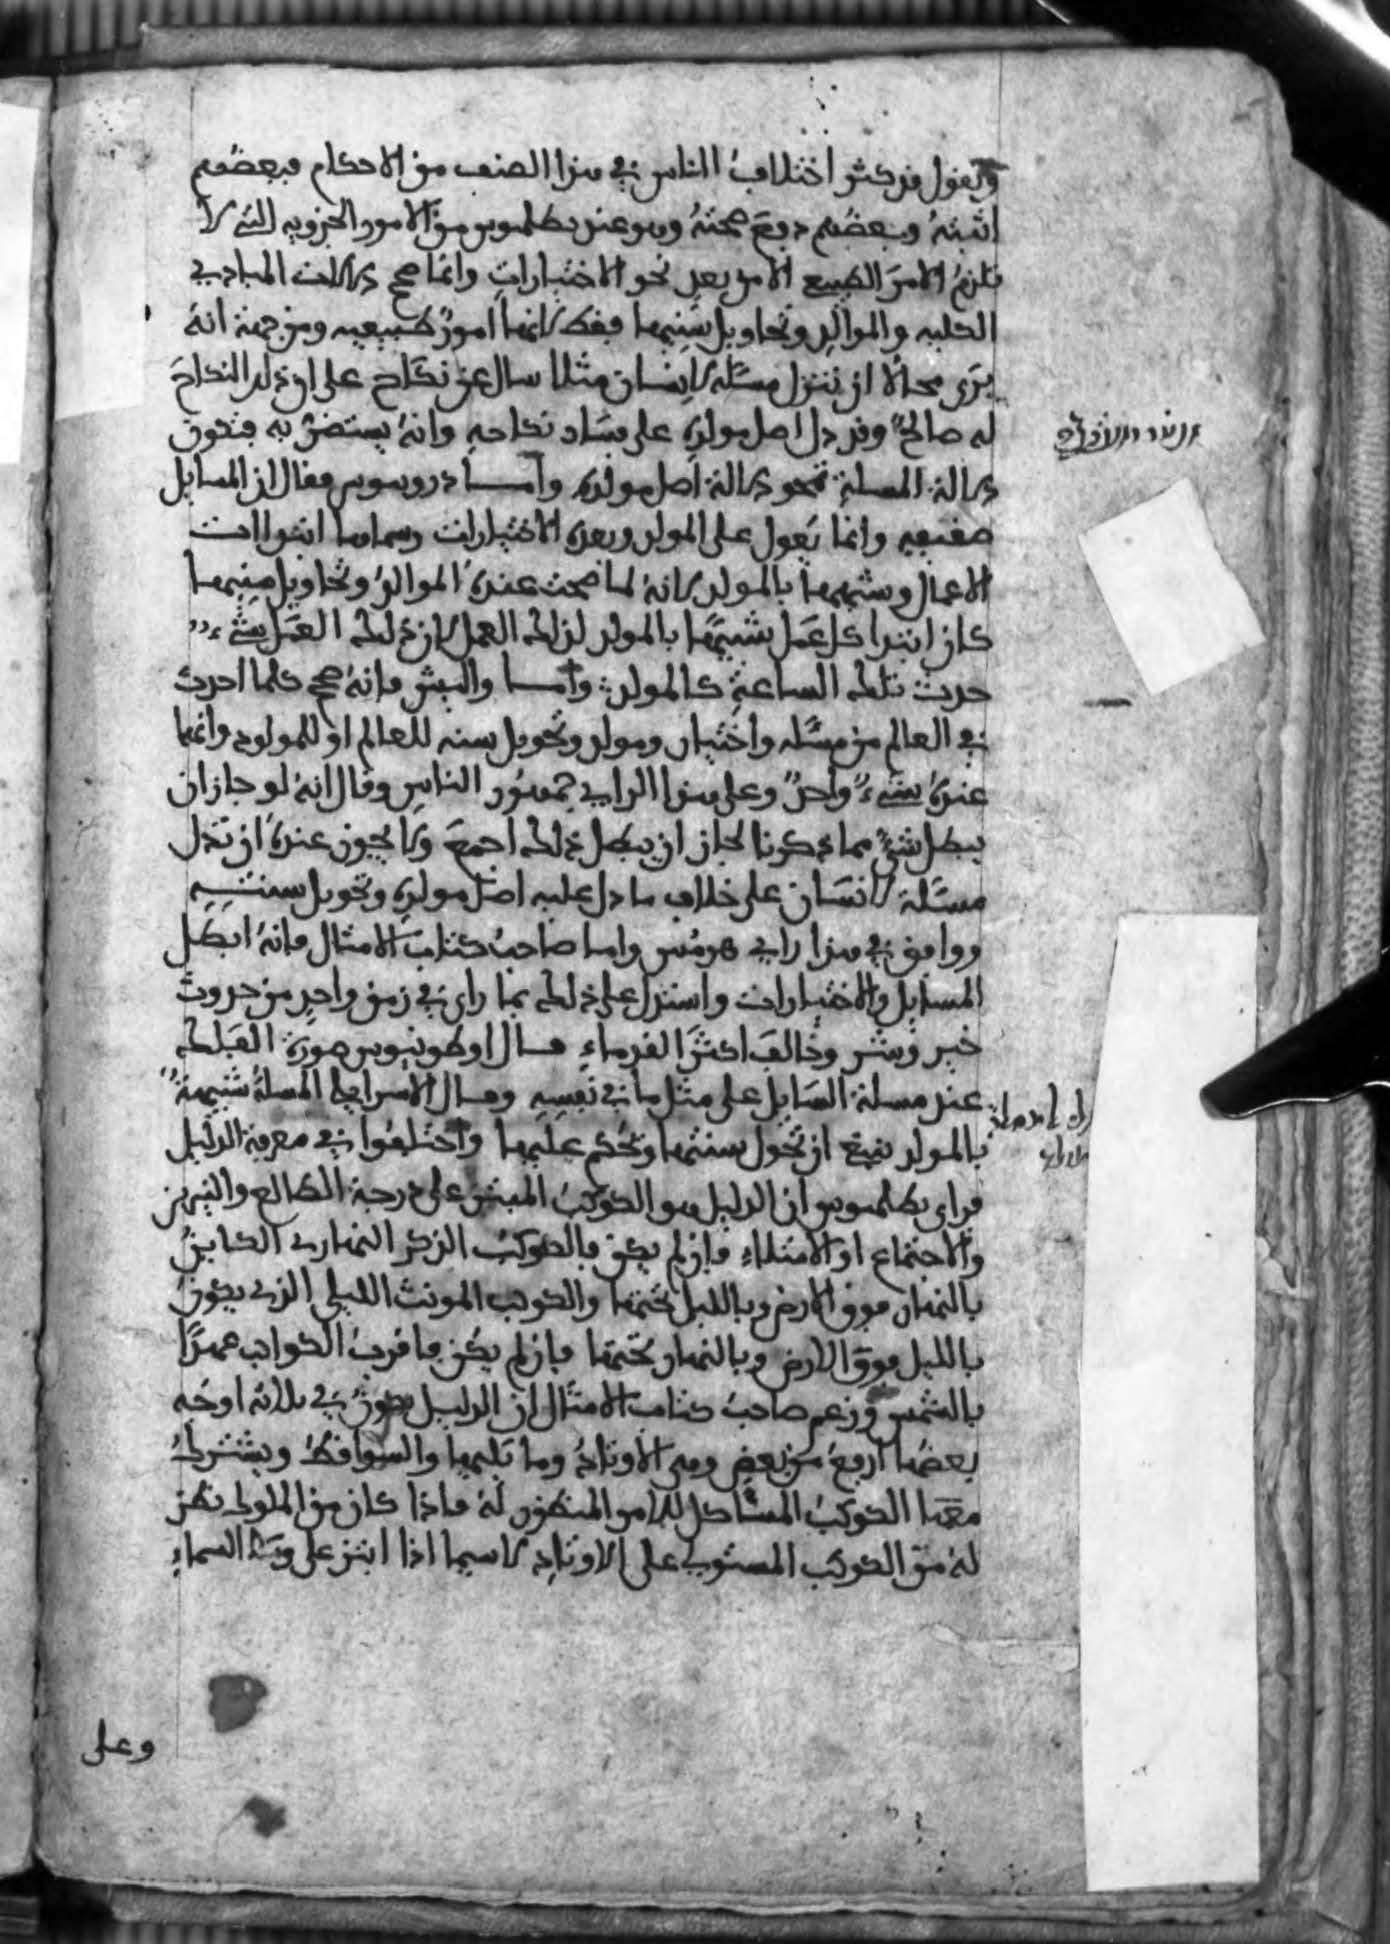 ونقول قد كثر اختلاف الناس في هذا الصنف من الاحكام فبعضهم
اثبته وبعضهم دفع صحته وهو عند بطلميوس من الامور الجزويه التي لا
تلزم الامر الطبيع الامر بعد نحو الاختيارات وانما صحح دلالات المبادي
الكليه والموالد وتحاويل سنيها فقط لانها امور طبيعيه ومن جهة انه
يرى محالا ان تنزل مسئله لانسان مثلا سال عن نكاح على ان ذلك النكاح
له صالح وقد دل اصل مولده على فساد نكاحه وانه يستضر به فتكون
دلالة المسلة تمحو دلالة اصل مولده واما دروسوس فقال ان المسايل
ضعيفه وانما يعول على المولد وبعده الاختيارات وسماها ابتداات
الاعمال وشبهها بالمولد لانه لما صحت عنده المواليد وتحاويل سنيها
كان ابتدا كل عمل شبيها بالمولد لذلك العمل لان ذلك العمل شيء
حدث تلك الساعة كالمولد واما واليس فانه صحح كلما احدث
في العالم من مسئله واختيار ومولد وتحويل سنه للعالم او للمولود وانها
عنده شيء واحد وعلى هذا الراي جمهور الناس وقال انه لو جاز ان
يبطل شيء مما ذكرنا لجاز ان يبطل ذلك اجمع ولا يجوز عنده ان تدل
مسئلة لانسان على خلاف ما دل عليه اصل مولده وتحويل سنته
ووافق في هذا راي هرمس واما صاحب كتاب الامثال فانه ابطل
المسايل والاختيارات واستدل على ذلك بما راى في زمن واحد من حدوث
خير وشر وخالف اكثر القدماء قال اوطوبيوس صورة الفلك
عند مسلة السايل على مثل ما في نفسه وقال الاسرايلي المسلة شبيهة
بالمولد فينبغ ان تحول سنتها وتحكم عليها واختلفوا في معرفة الدليل
فراى بطلميوس ان الدليل هو الكوكب المبتز على درجة الطالع والنيرين
والاجتماع او الامتلاء فان لم يكن فالكوكب الذكر النهاري الكاين
بالنهار فوق الارض وبالليل تحتها والكوكب المونث الليلي الذي يكون
بالليل فوق الارض وبالنهار تحتها فان لم يكن فاقرب الكواكب عهدا
بالشمس وزعم صاحب كتاب الامثال ان الدليل يكون في ثلاثه اوجه
بعضها ارفع من بعض وهي الاوتاد وما تليها والسواقط ويشترك
معها الكوكب المشاكل للامر المنظور له فاذا كان من الملوك نظر
له من الكوكب المستولي على الاوتاد لاسيما اذا ابتز على وسط السماء
وعلى